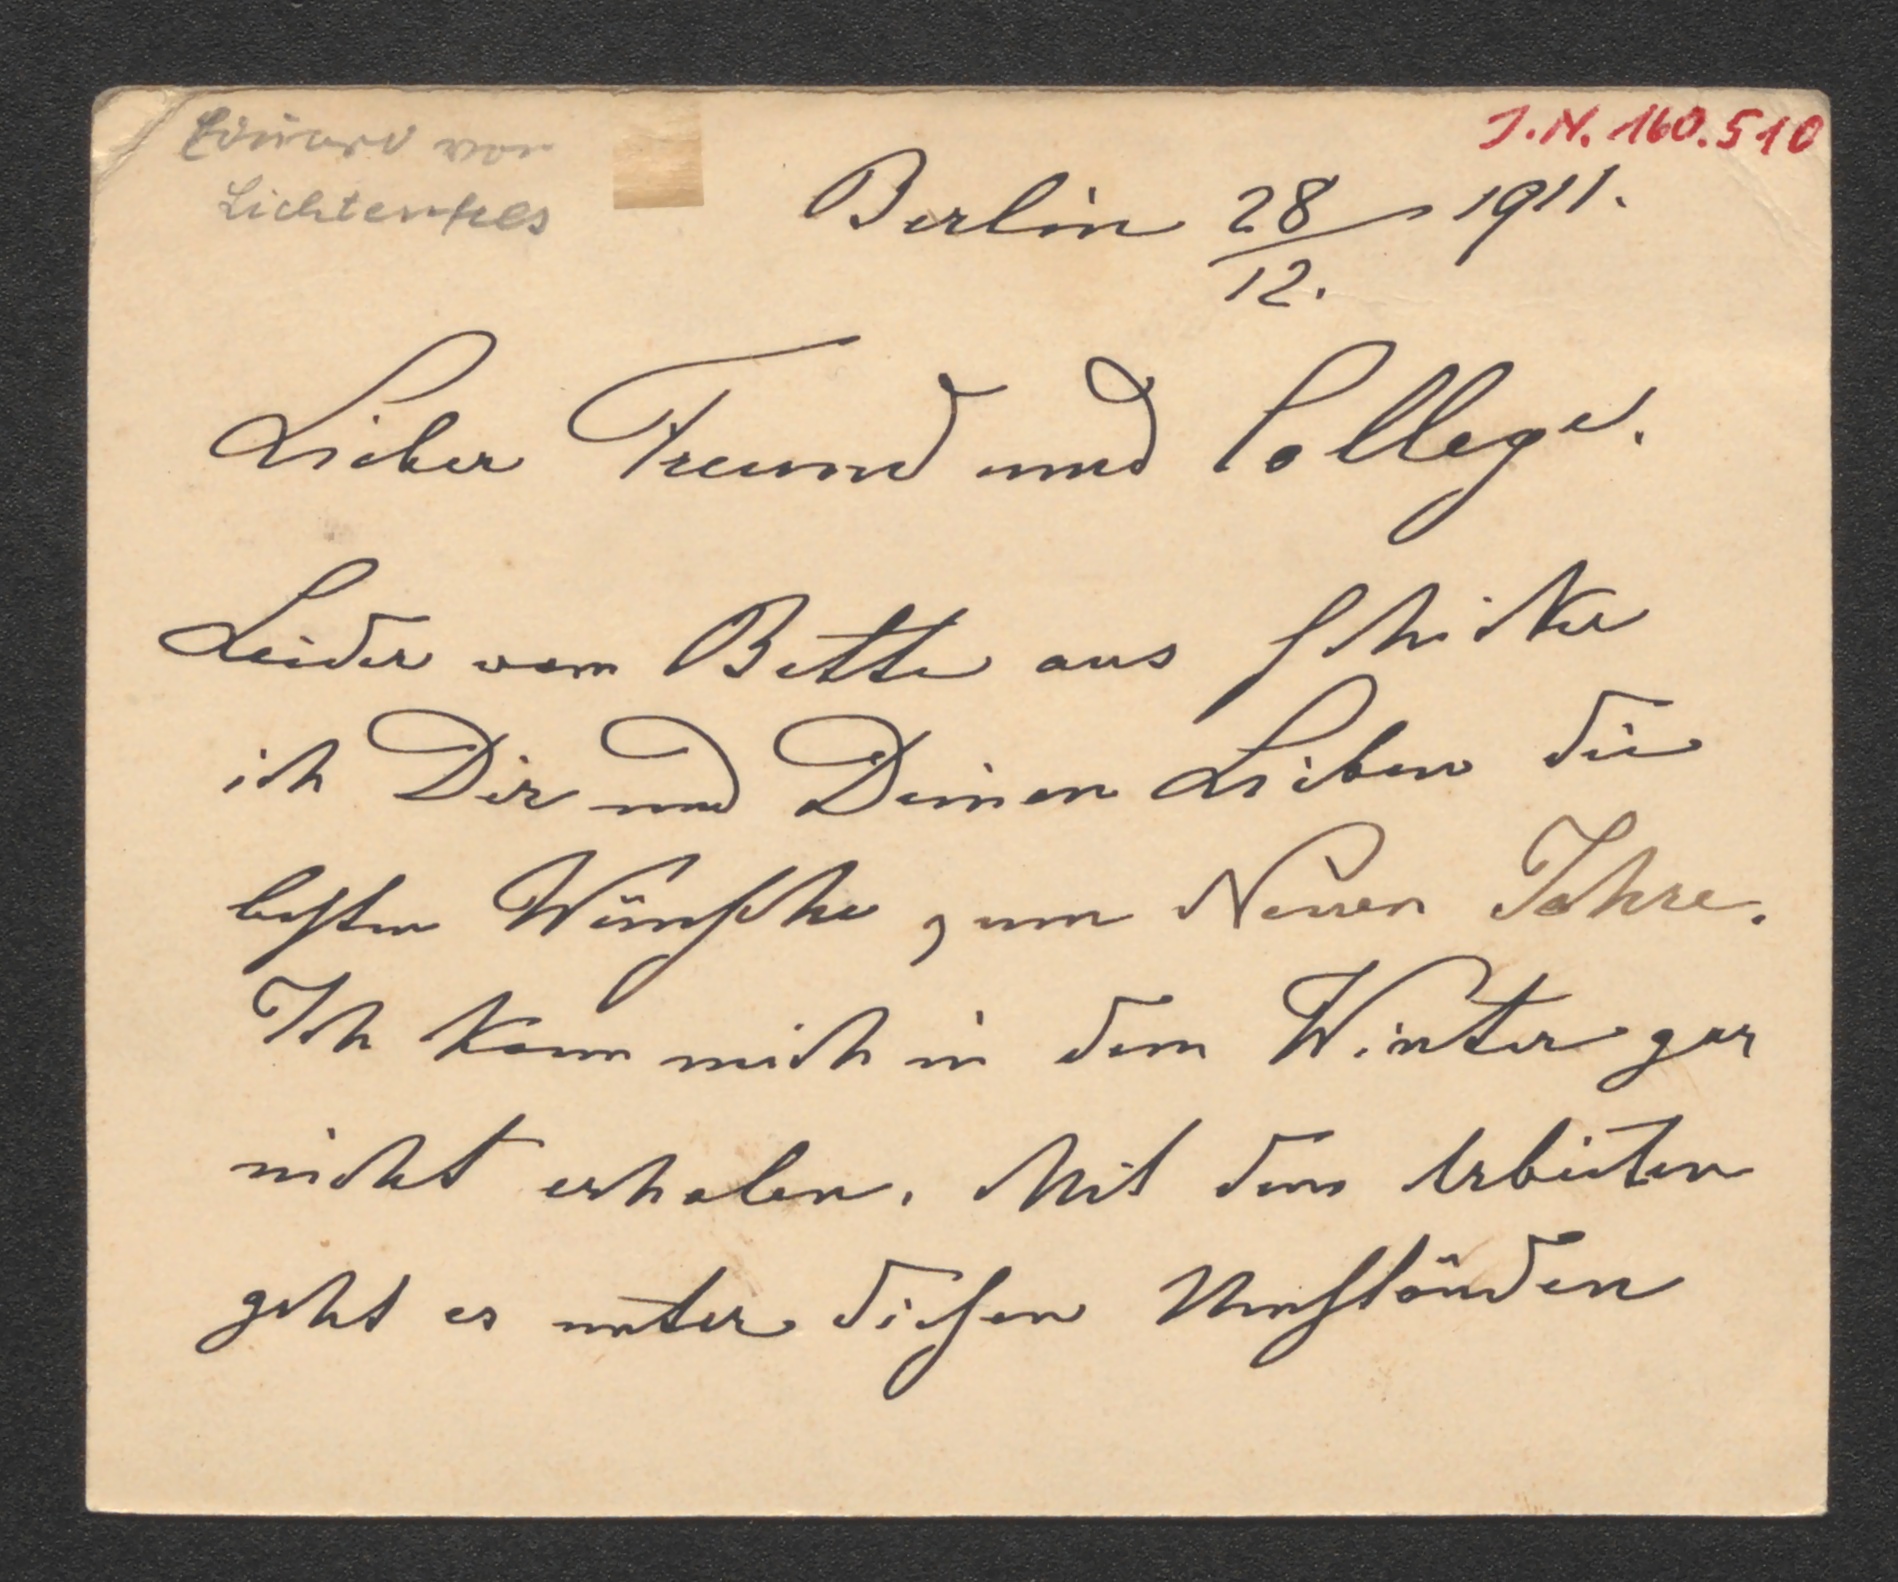 Eduard von
Lichtenfels
J.N. 160.510
Berlin 28/12. 1911.
Lieber Freund und College.
Leider vom Bette aus schicke
ich Dir und Deinen Lieben die
besten Wünsche zum Neuen Jahre.
Ich kann mich in dem Winter gar
nicht erholen. Mit dem Arbeiten
geht es unter diesen Umständen